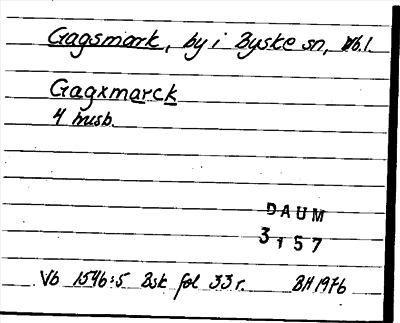 Gagsmark, by i Byske sn, Vb.l.
Gagxmarck
4 husb.
DAUM
3157
Vb 1546:5 Bsk fol 33r. BH 1976